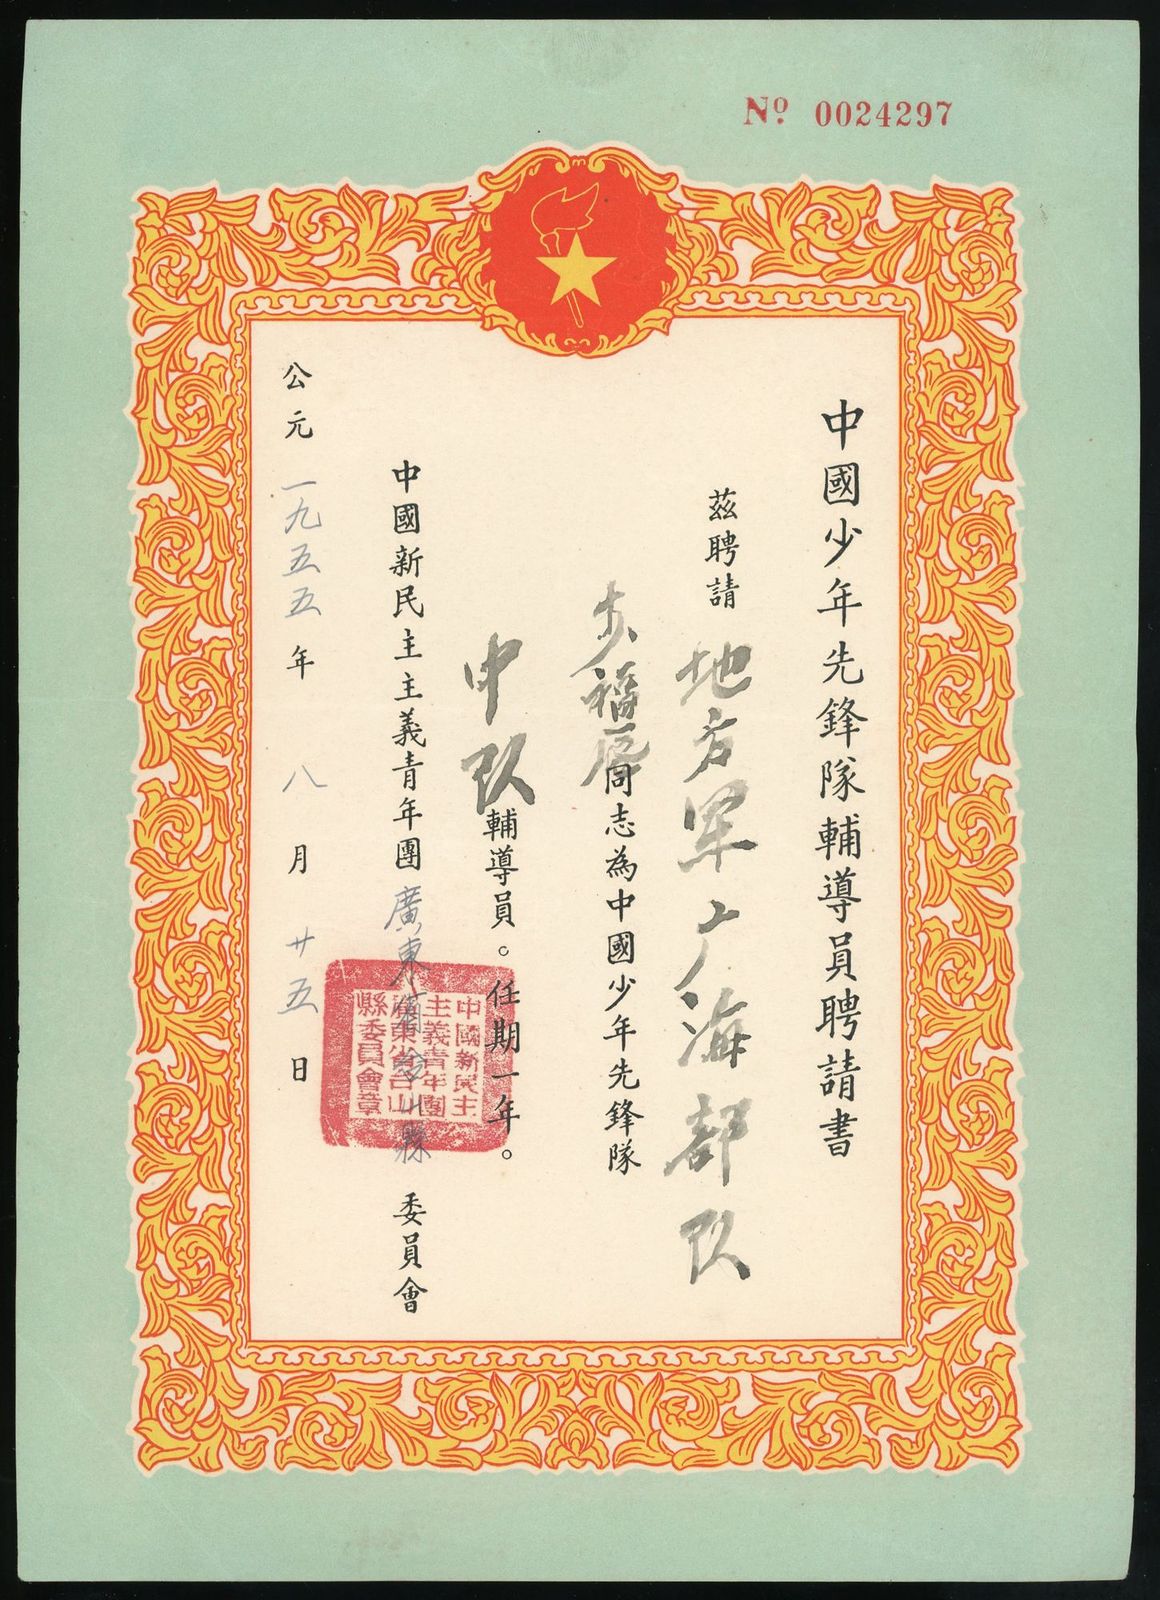 № 0024297
中國少年先鋒隊輔導員聘請書
茲聘請地方軍广海部队
福同志為中國少年先鋒隊
中队輔導員。任期一年。
中國新民主主義青年團廣東省台山縣委員會
公元一九五五年八月廿五日
中國新民主
主義青年團
廣東省台山
縣委員會章